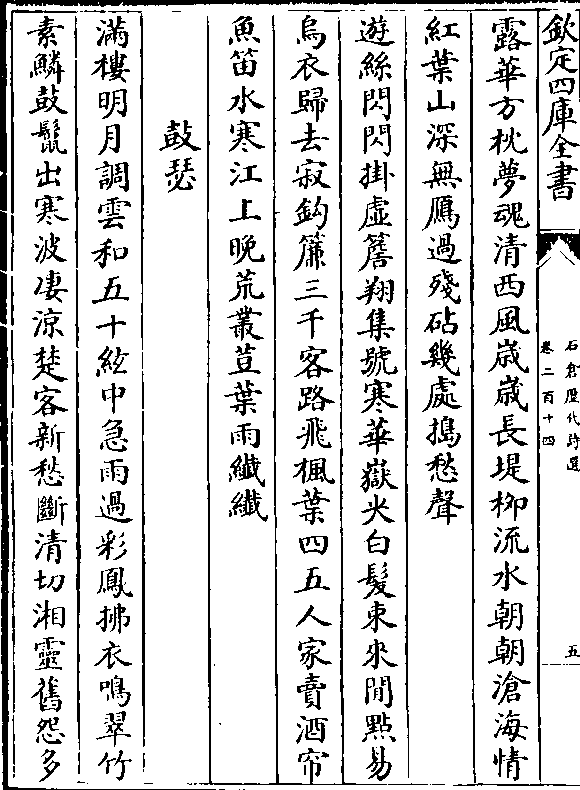 欽定四庫全書
石倉歷代詩選
卷二百十四
五
露華方枕夢魂清西風歳歳長堤栁流水朝朝滄海情
紅葉山深無鴈過殘砧幾處搗愁聲
遊絲閃閃掛虛簷翔集號寒華嶽尖白髮東來閒點易
烏衣歸去寂鈎簾三千客路飛楓葉四五人家賣酒帘
魚笛水寒江上晚荒叢荳葉雨纎纎
鼓瑟
滿樓明月調雲和五十絃中急雨過彩鳳拂衣鳴翠竹
素鱗鼓鬛出寒波凄涼楚客新愁斷清切湘靈舊怨多